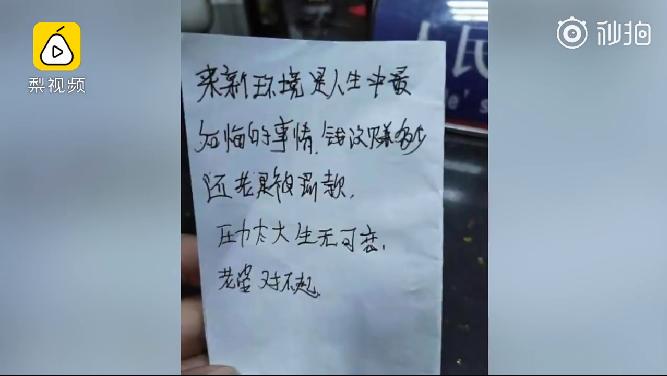 梨视频
秒拍
人民
e's s
来新环境是人生中最
后悔的事情,钱没赚多少
还老是被罚款,
压力太大生无可恋,
老婆对不起